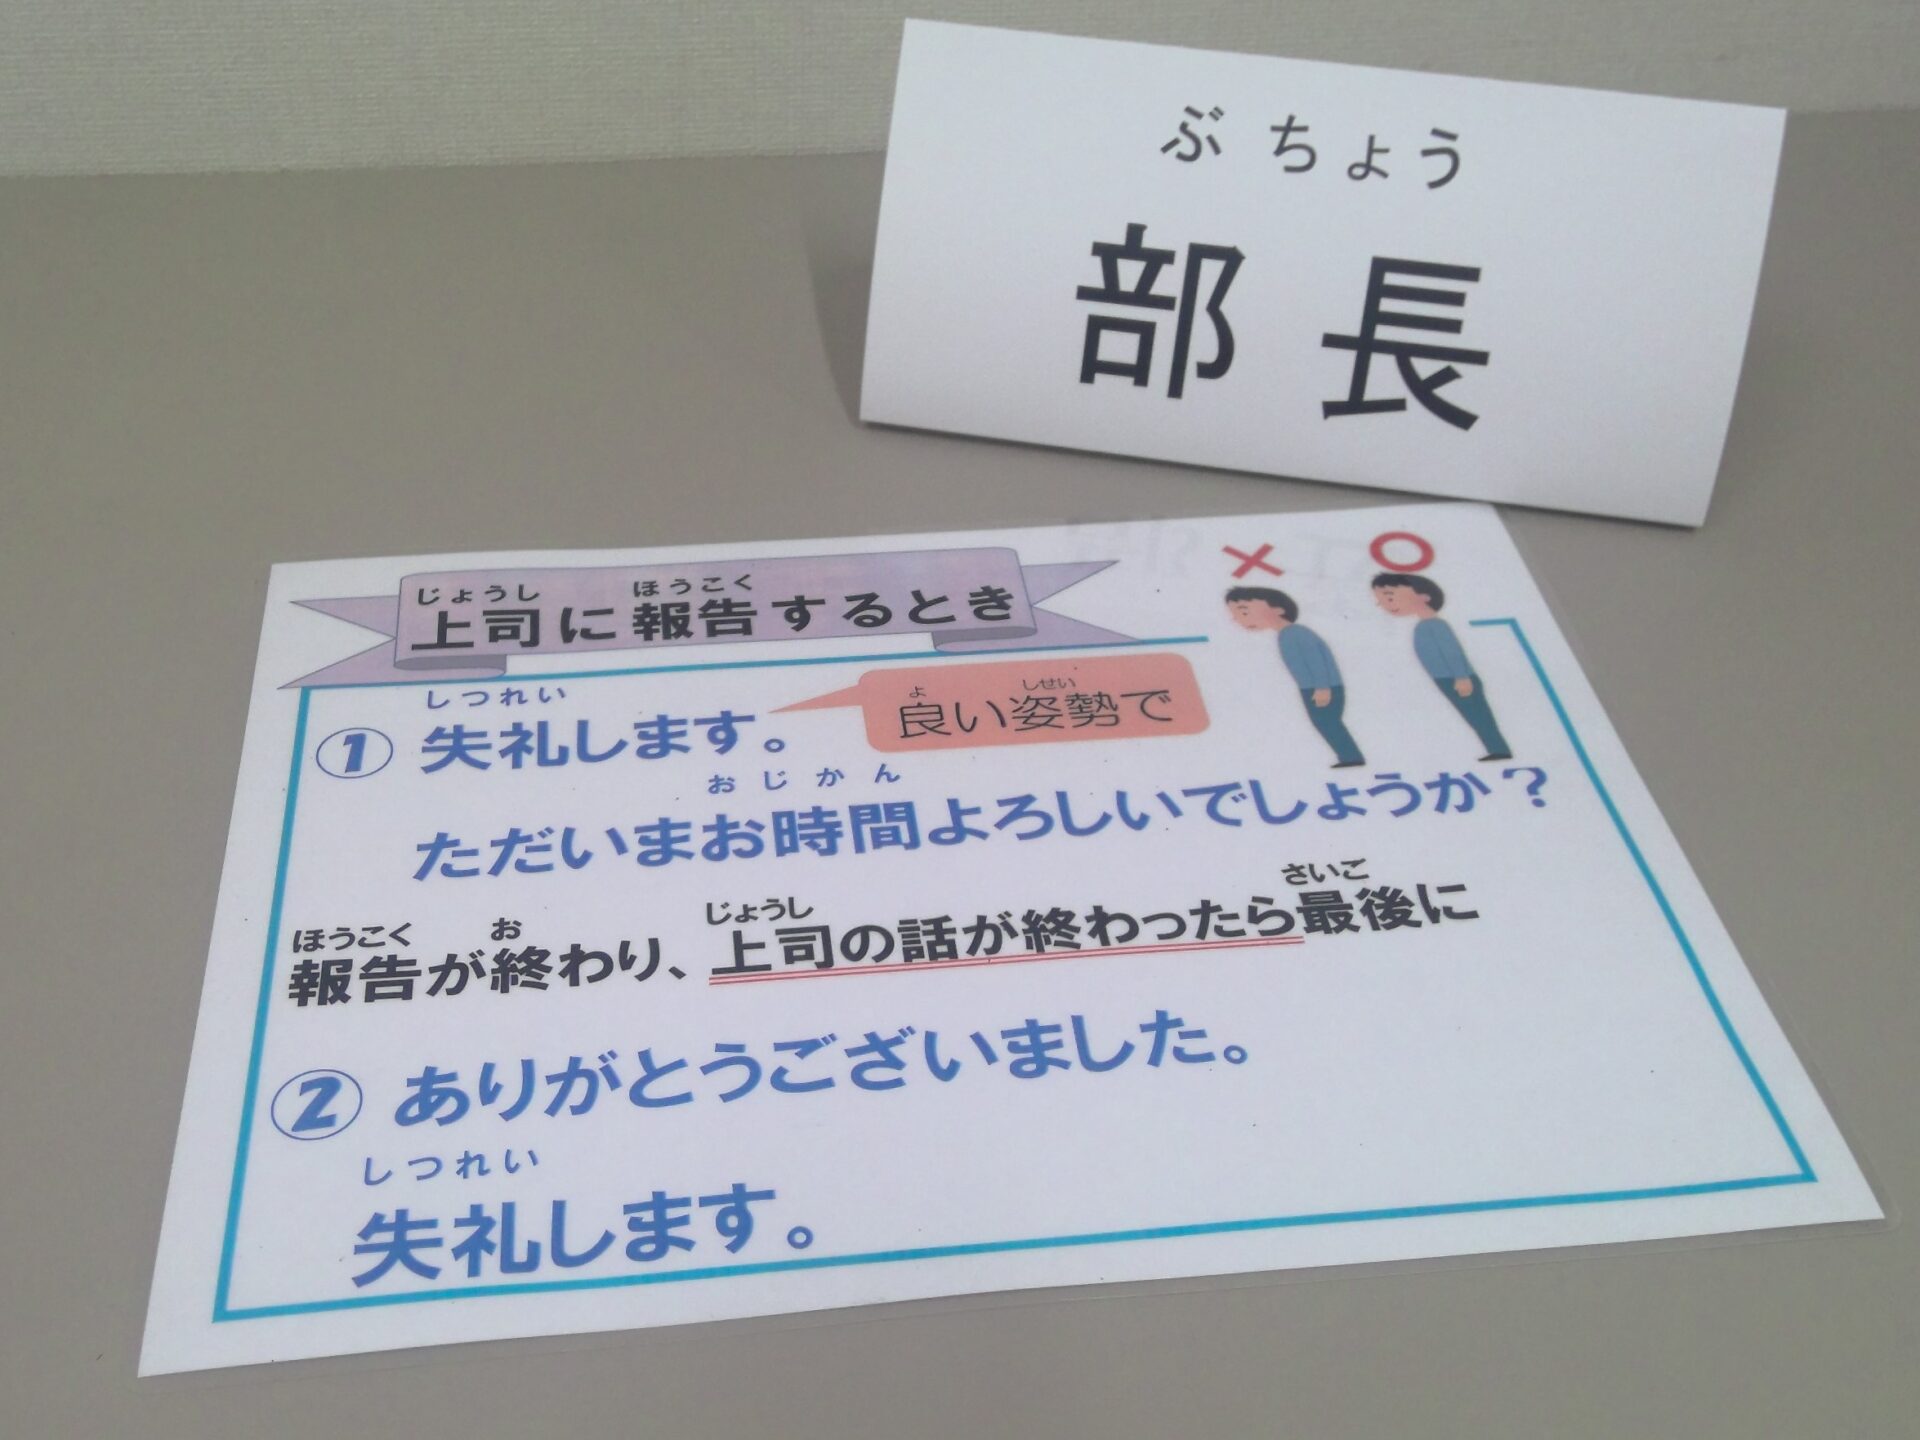 ぶちょう
部長
じょうし ほうこく
上司に報告するとき
× ○
しつれい
① 失礼します。
よ しせい
良い姿勢で
おじかん
ただいまお時間よろしいでしょうか?
ほうこく お じょうし さいご
報告が終わり、上司の話が終わったら最後に
② ありがとうございました。
しつれい
失礼します。